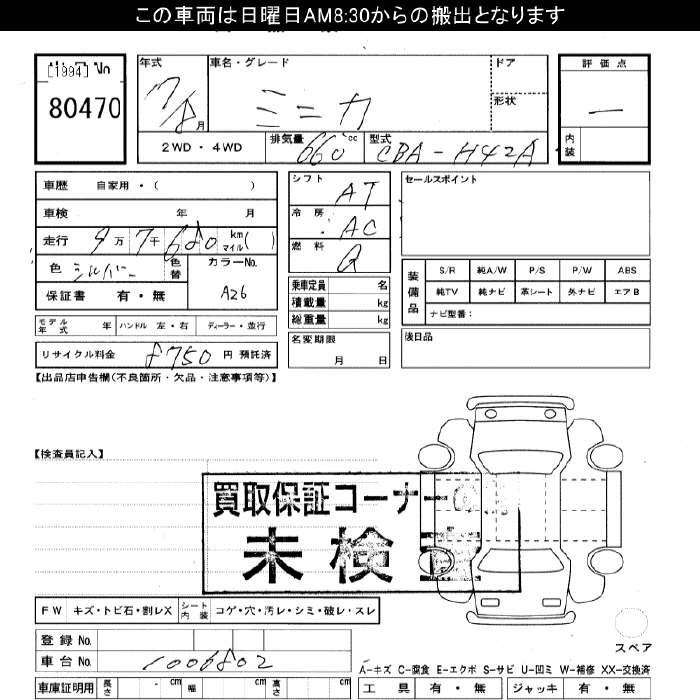 この車両は日曜日AM8:30からの搬出となります
[1994] No
80470
年式
17/8 月
車名・グレード
ミニカ
ドア
形状
評価点
内装
2WD・4WD
排気量
660 cc
型式
CBA-H42A
車歴 自家用・( )
車検 年 月
走行 9万7千680 km マイル( )
色 シルバー 色替
カラーNo.
A26
保証書 有・無
シフト AT
冷房 AC
燃料 G
セールスポイント
乗車定員 名
積載量 kg
総重量 kg
装備品
S/R 純A/W P/S P/W ABS
純TV 純ナビ 革シート 外ナビ エアB
ナビ型番:
モデル年式 年 ハンドル 左・右 ディーラー・並行
名変期限
月 日
後日品
リサイクル料金 8750 円 預託済
【出品店申告欄(不良箇所・欠品・注意事項等)】
【検査員記入】
買取保証コーナー
未検
FW キズ・トビ石・割レX シート内装 コゲ・穴・汚レ・シミ・破レ・スレ
登録No.
車台No. 1006802
スペア
A-キズ C-腐食 E-エクボ S-サビ U-凹ミ W-補修 XX-交換済
車庫証明用 長さ cm 幅 cm 高さ cm
工具 有・無 ジャッキ 有・無